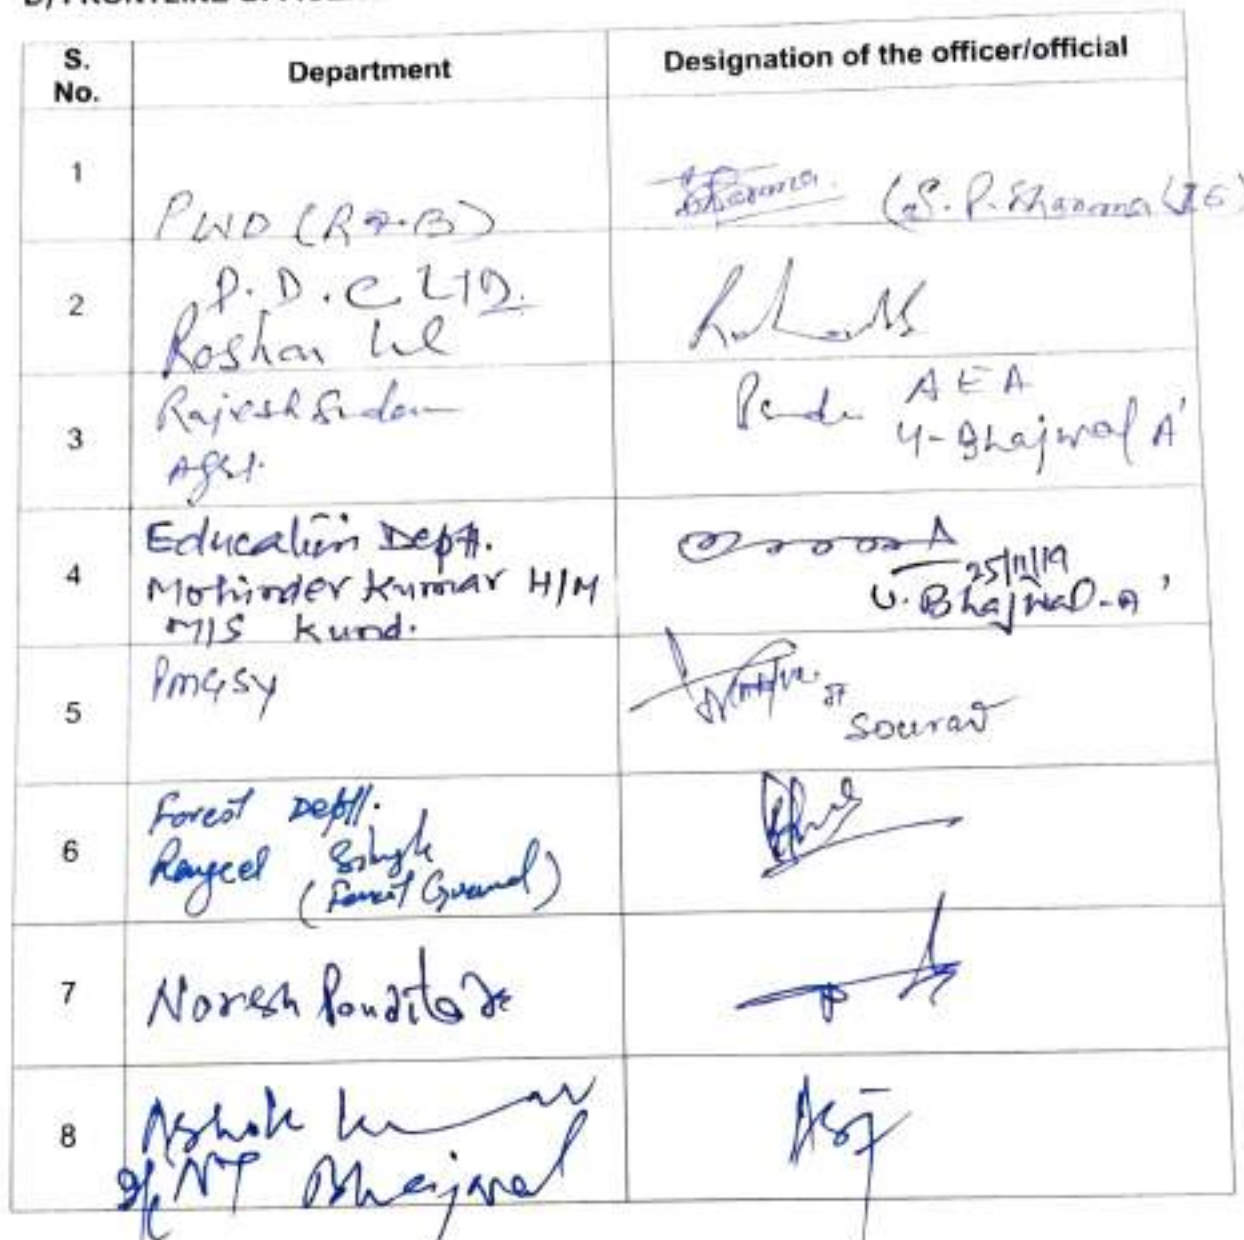 S. No.
Department
Designation of the officer/official
1
PWD (R&B)
Sharma
(S. P. Sharma (JE)
2
P.D.C LTD.
Roshan Lal
3
Rajesh
Agri.
AEA
U-Bhajwal A'
4
Education Deptt.
Mohinder Kumar H/M
M/S Kund.
25/11/19
U. Bhajwal-A'
5
PMGSY
JE
Sourav
6
Forest Deptt.
Singh
(Forest Guard)
7
Naresh Pandita JE
8
Ashok Kumar
I/C NT Bhajwal